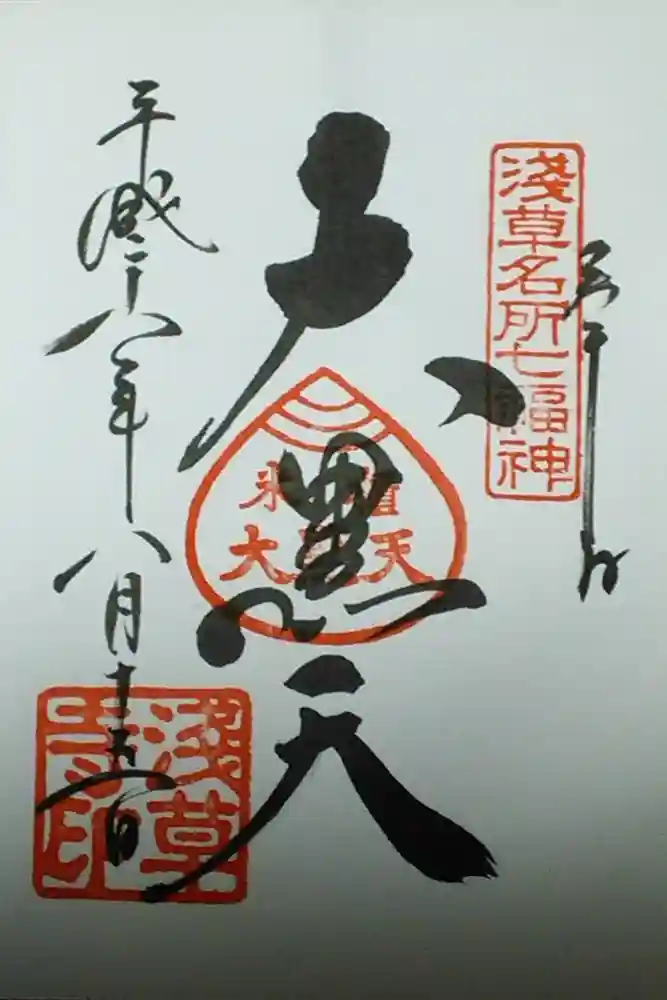 奉拝
淺草名所七福神
大黒天
平成二十八年八月十五日
淺草寺印